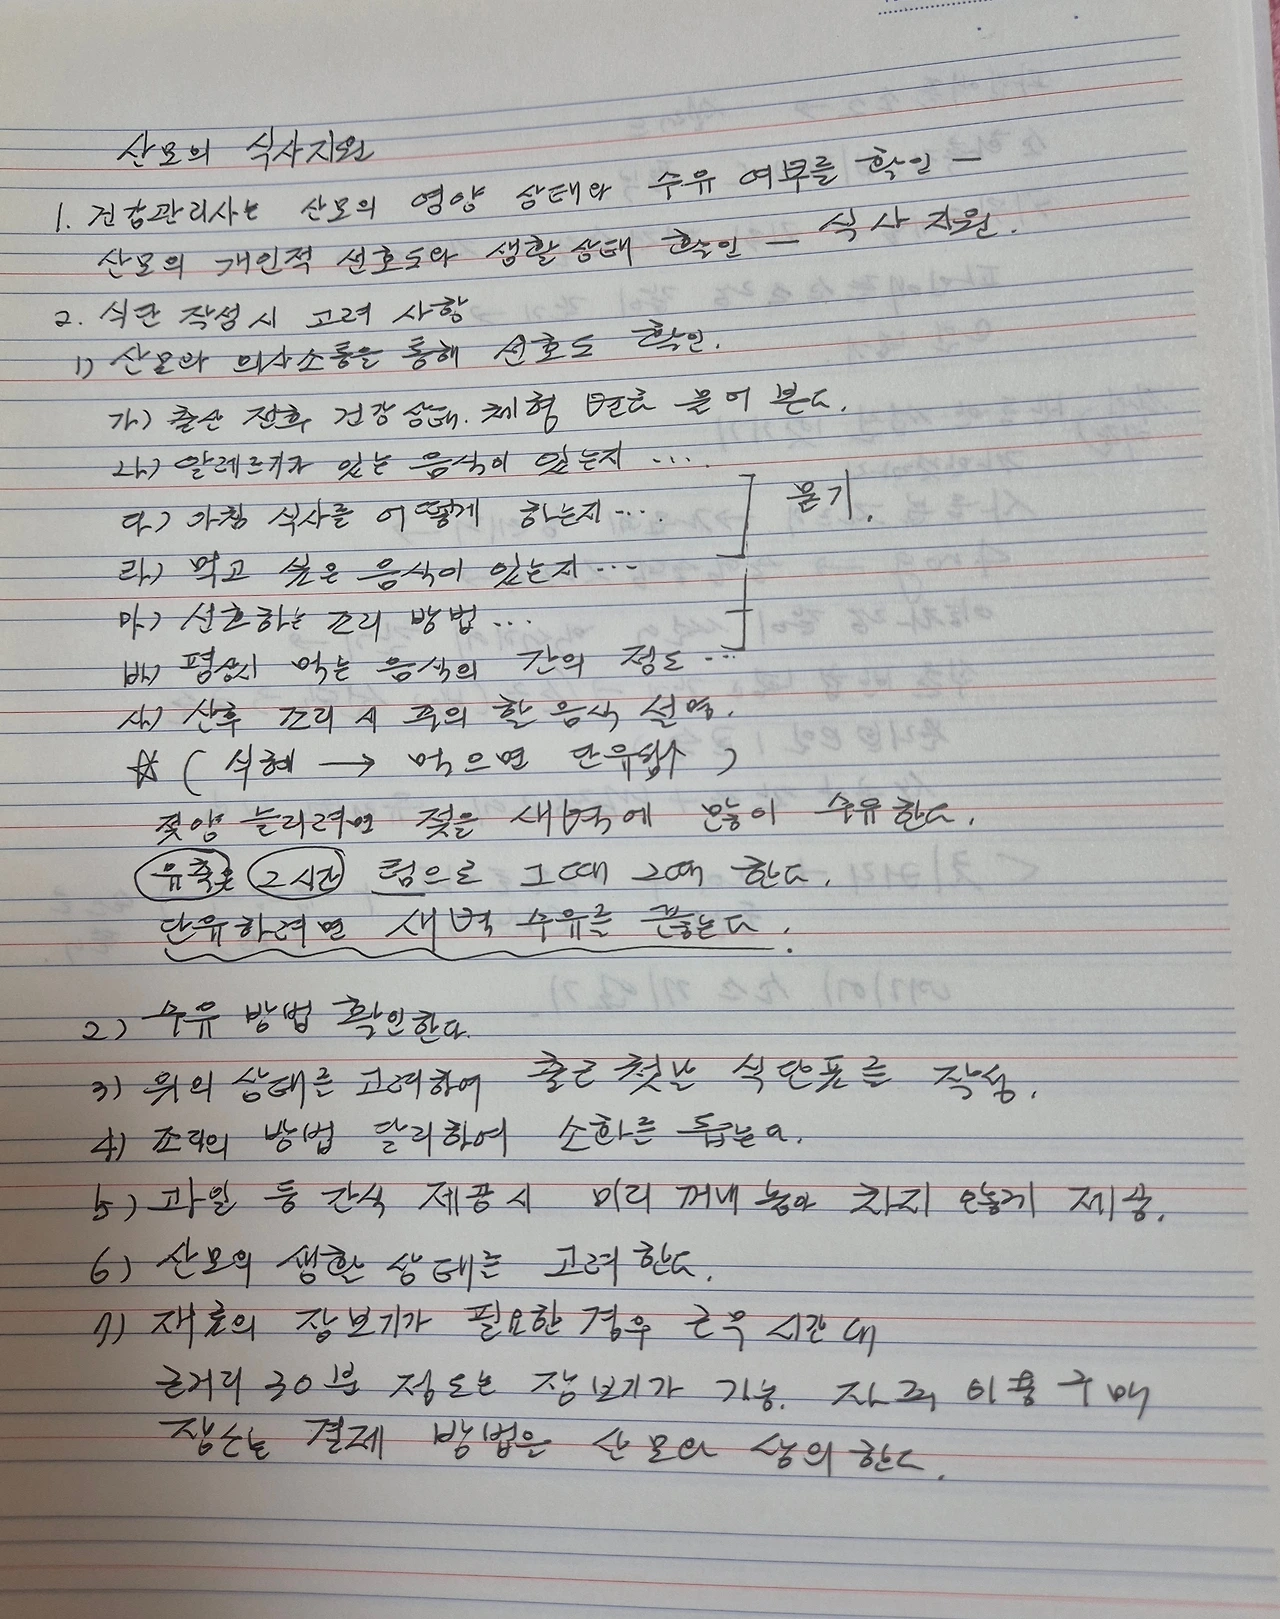 산모의 식사지원
1. 건강관리사는 산모의 영양 상태와 수유 여부를 확인 —
산모의 개인적 선호도와 생활상태 확인 — 식사 지원.
2. 식단 작성시 고려 사항
1) 산모와 의사소통을 통해 선호도 확인.
가) 출산 전후 건강상태. 체형 변화 물어 본다.
나) 알레르기가 있는 음식이 있는지 ...
다) 아침 식사를 어떻게 하는지 ... 묻기.
라) 먹고 싶은 음식이 있는지 ...
마) 선호하는 조리 방법 ...
바) 평상시 먹는 음식의 간의 정도 ...
사) 산후 조리 시 주의 할 음식 설명.
☆ ( 식혜 → 먹으면 단유됨 )
젖양 늘리려면 젖을 새벽에 많이 수유한다.
유축은 2시간 텀으로 그때 그때 한다.
단유하려면 새벽 수유를 끊는다.
2) 수유 방법 확인한다.
3) 위의 상태를 고려하여 출근 첫날 식단표를 작성.
4) 조리의 방법 달리하여 소화를 돕는다.
5) 과일 등 간식 제공시 미리 꺼내 놓아 차지 않게 제공.
6) 산모의 생활 상태를 고려 한다.
7) 재료의 장보기가 필요한 경우 근무 시간 대
근거리 30분 정도는 장보기가 가능. 이용 구매
장소는 결제 방법은 산모와 상의 한다.